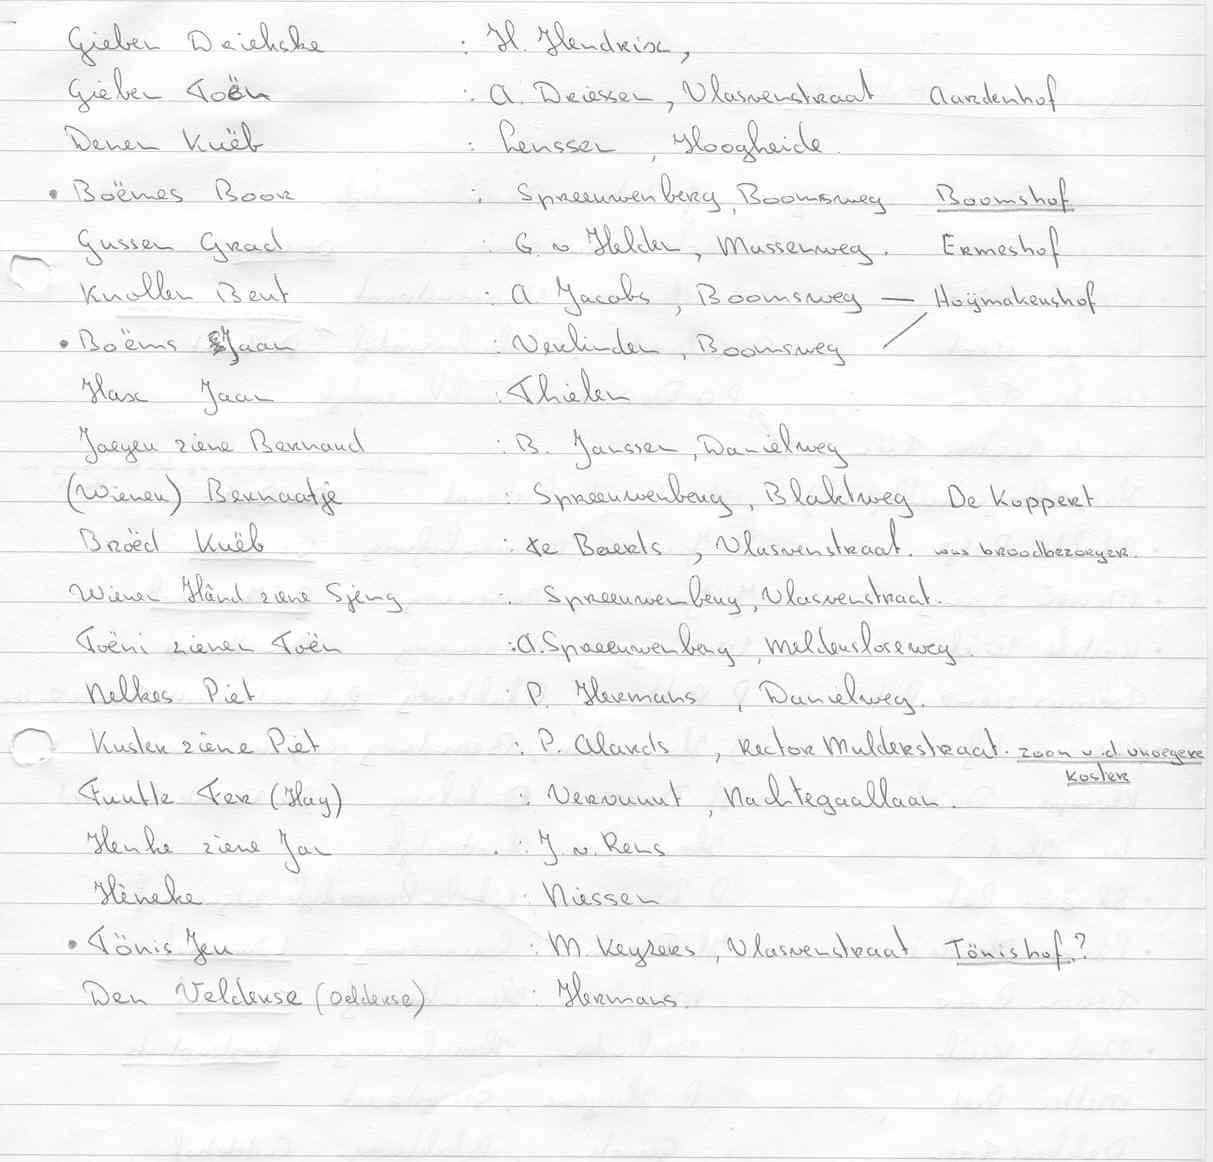 Gieben Driekske : H. Hendrix,
Gieben Toën : A. Driessen, Vlasvenstraat Aardenhof
Denen Kuëb : Lenssen, Hoogheide.
• Boëmes Boor : Spreeuwenberg, Boomsweg Boomshof
Gussen Grad : G. v. Helden, Mussenweg. Ermeshof
Knollen Bert : A. Jacobs, Boomsweg — Hoÿmakershof
• Boëms Jaan : Verlinden, Boomsweg
Hax Jaan : Thielen
Jaegen ziene Bernard : B. Janssen, Daniëlweg
(Wienen) Bernaatje : Spreeuwenberg, Blaktweg De Koppert
Broëd Kuëb : te Baerts, Vlasvenstraat. was broodbezorger.
Wienen Hând ziene Sjeng : Spreeuwenberg, Vlasvenstraat.
Toëni zienen Toën : A. Spreeuwenberg, Meldersloseweg.
Nelkes Piet : P. Hermans, Danielweg.
Kuster ziene Piet : P. Alards, Rector Mulderstraat. zoon v.d vroegere
koster
Fuutle Fer (Hay) : Vervuurt, Nachtegaallaan.
Henke ziene Jan : J. v. Rens
Hèneke : Niessen
• Tönis Jeu : M. Keyzers, Vlasvenstraat Tönishof?
Den Veldense (Oeldense) : Hermans.